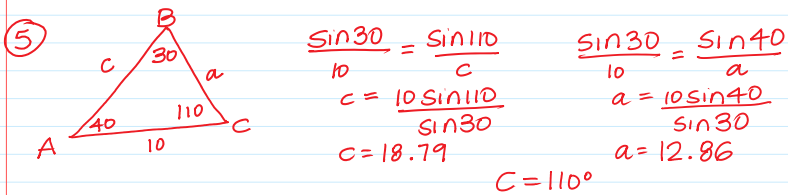 5
B
30
c
a
40
110
A
C
10
sin30/10 = sin110/c
c = 10sin110/sin30
c = 18.79
sin30/10 = sin40/a
a = 10sin40/sin30
a = 12.86
C = 110°